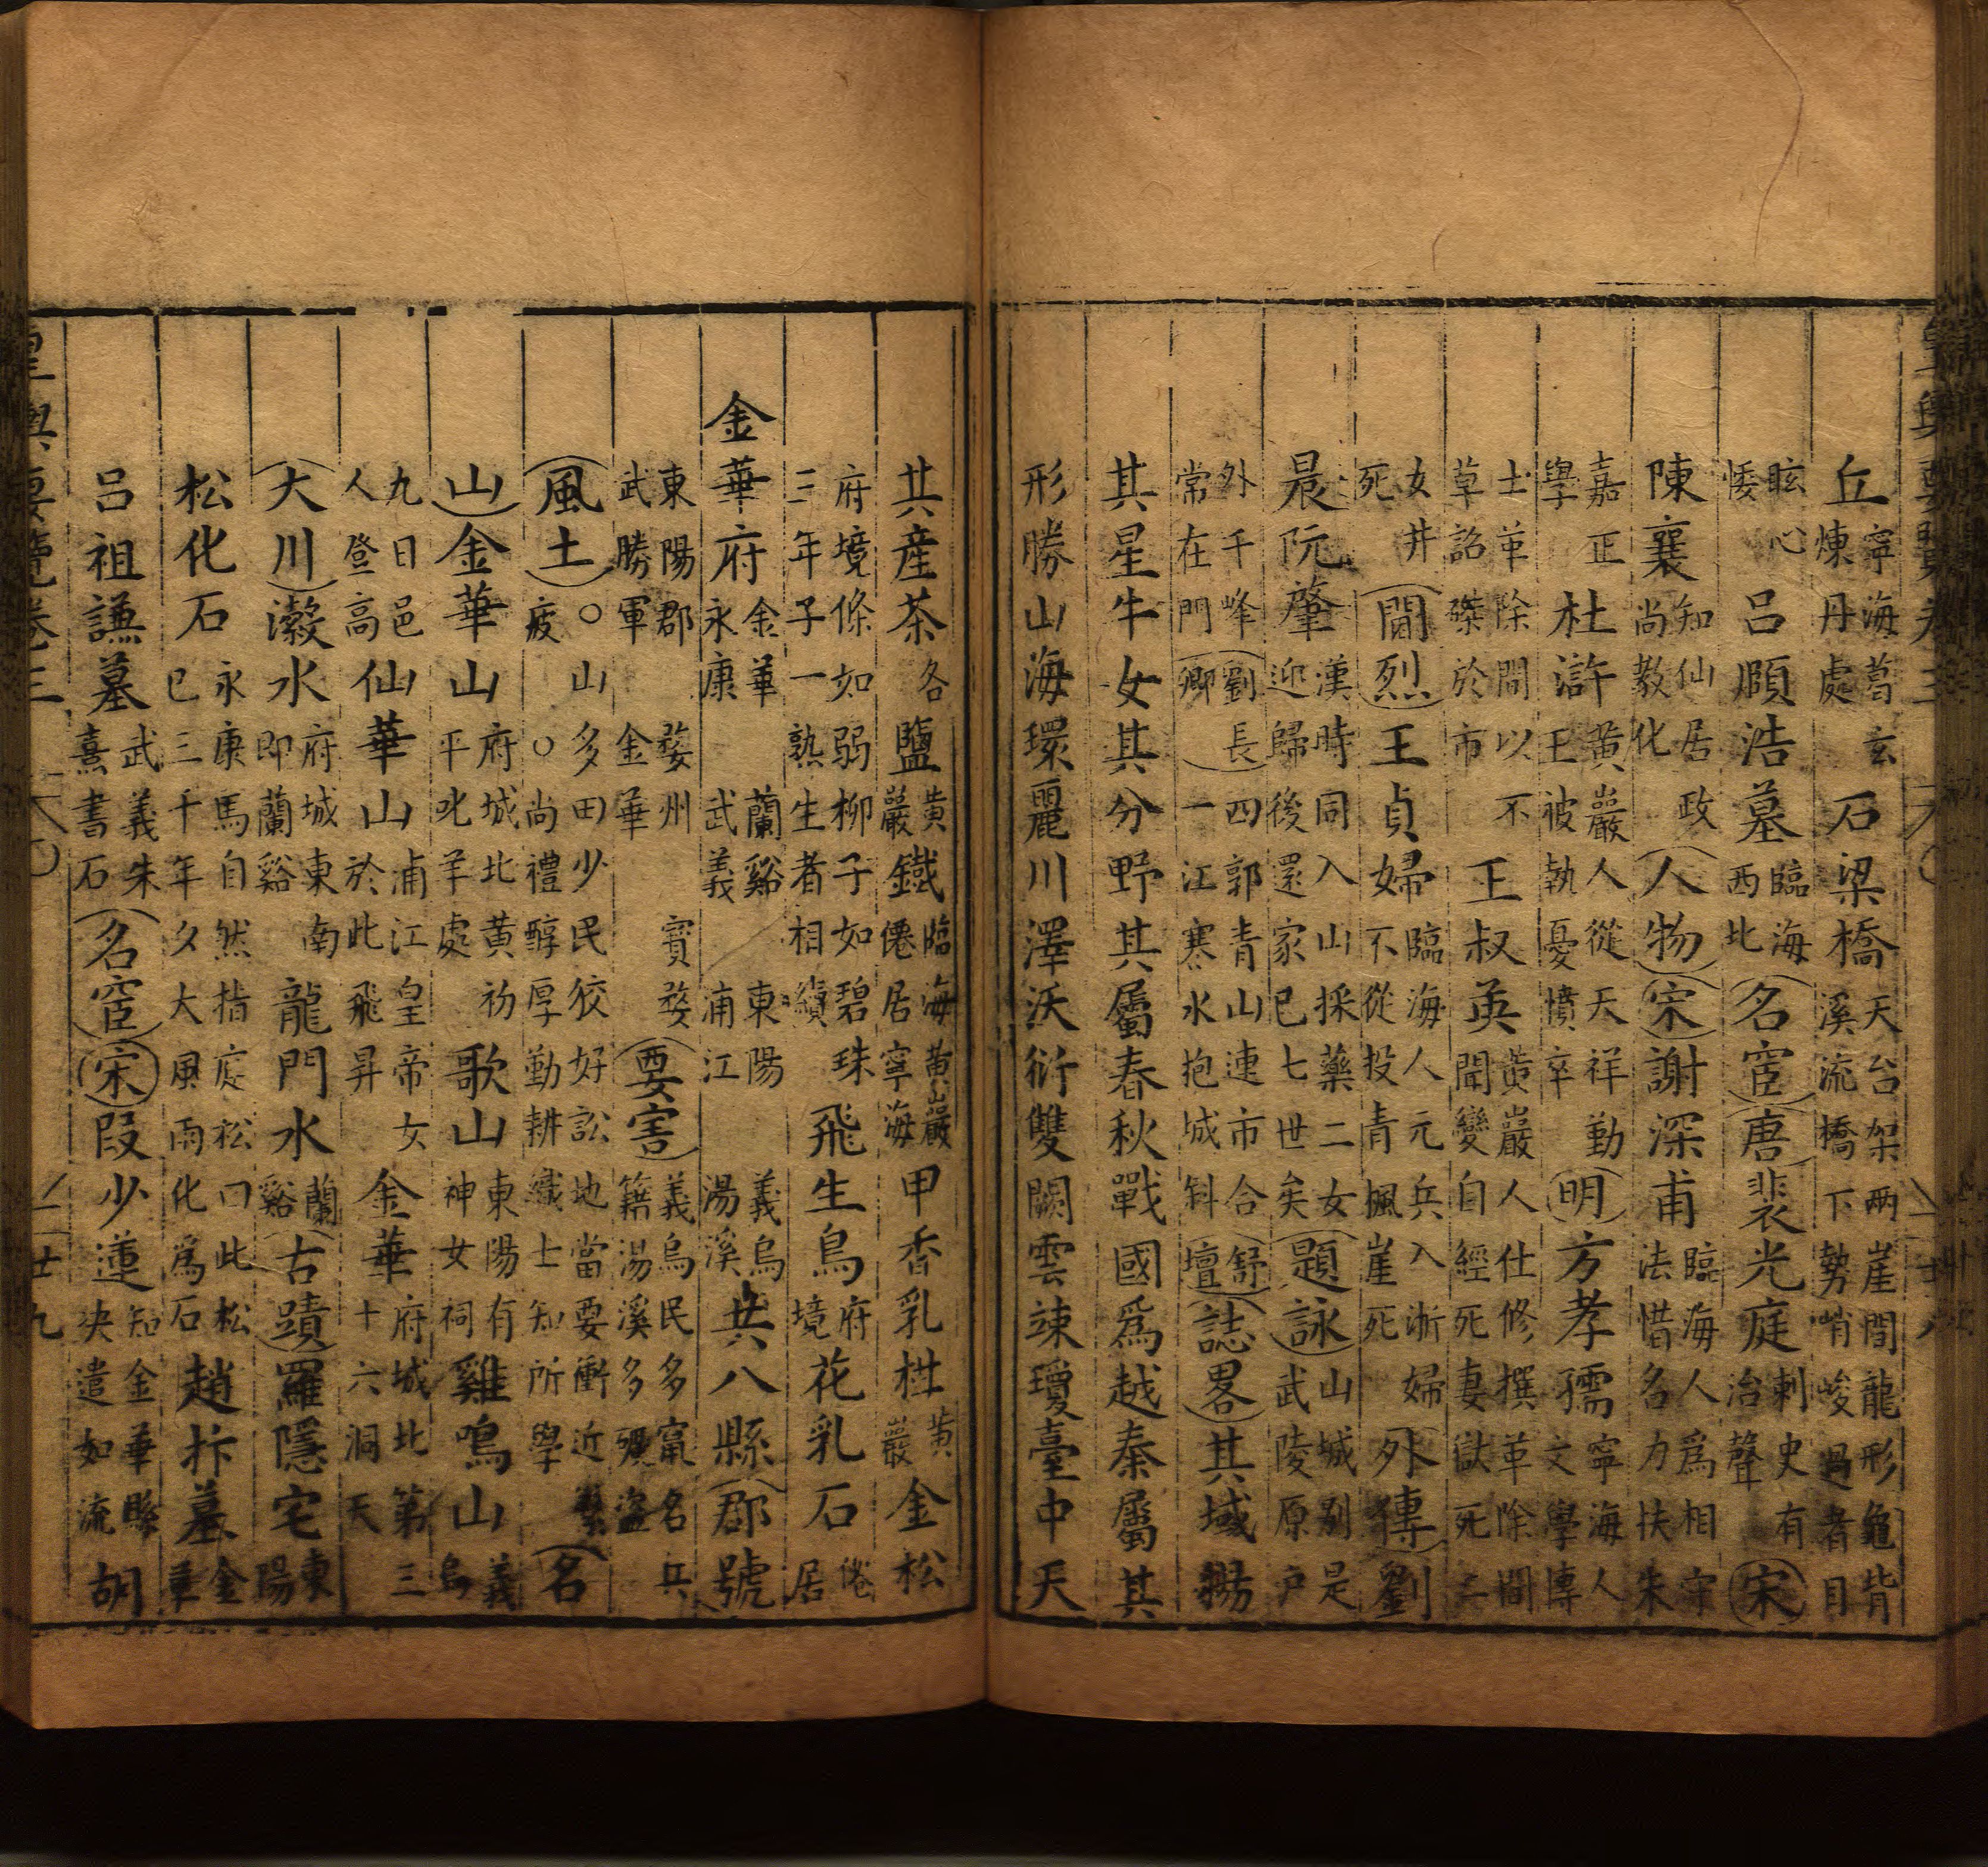 丘寧海葛玄煉丹處石梁橋天台架兩崖間龍形龜背溪流橋下勢峭峻過者目
眩心悸呂頤浩墓臨海西北名宦唐裴光庭刺史有治聲宋
陳襄知仙居政尚教化人物宋謝深甫臨海人爲相守法惜名力扶朱
嘉正學杜滸黃巖人從天祥勤王被執憂憤卒明方孝孺寧海人文學博
士革除間以不草詔磔於市王叔英黃巖人仕修撰革除間聞變自經死妻獄死二
女井死閫烈王貞婦臨海人元兵入浙婦不從投青楓崖死外傳劉
晨阮肇漢時同入山採藥二女迎歸後還家已七世矣題詠山城別是武陵原戶
外千峰常在門劉長卿四郭青山連市合一江寒水抱城斜舒亶誌畧其域揚
其星牛女其分野其屬春秋戰國爲越秦屬其
形勝山海環麗川澤沃衍雙闕雲竦瓊臺中天
其產茶各鹽黃巖鐵臨海黃巖僊居寧海甲香乳柱黃巖金松
府境條如弱柳子如碧珠三年子一熟生者相續飛生鳥府境花乳石僊居
金華府金華永康蘭谿武義東陽浦江義烏湯溪共八縣郡號
東陽郡武勝軍婺州金華寶婺要害義烏民多竄名兵籍湯溪多礦盜
風土○山多田少民狡好訟地當要衝近繫疲○尚禮醇厚勤耕織士知所學名
山金華山府城北黃初平叱羊處歌山東陽有神女祠雞鳴山義烏
九日邑人登高仙華山浦江皇帝女於此飛昇金華府城北第三十六洞天
大川瀫水府城東南即蘭谿龍門水蘭谿古蹟羅隱宅東陽
松化石永康馬自然指庭松曰此松已三千年夕大風雨化爲石趙抃墓金華
呂祖謙墓武義朱熹書石名宦宋段少蓮知金華縣決遣如流胡